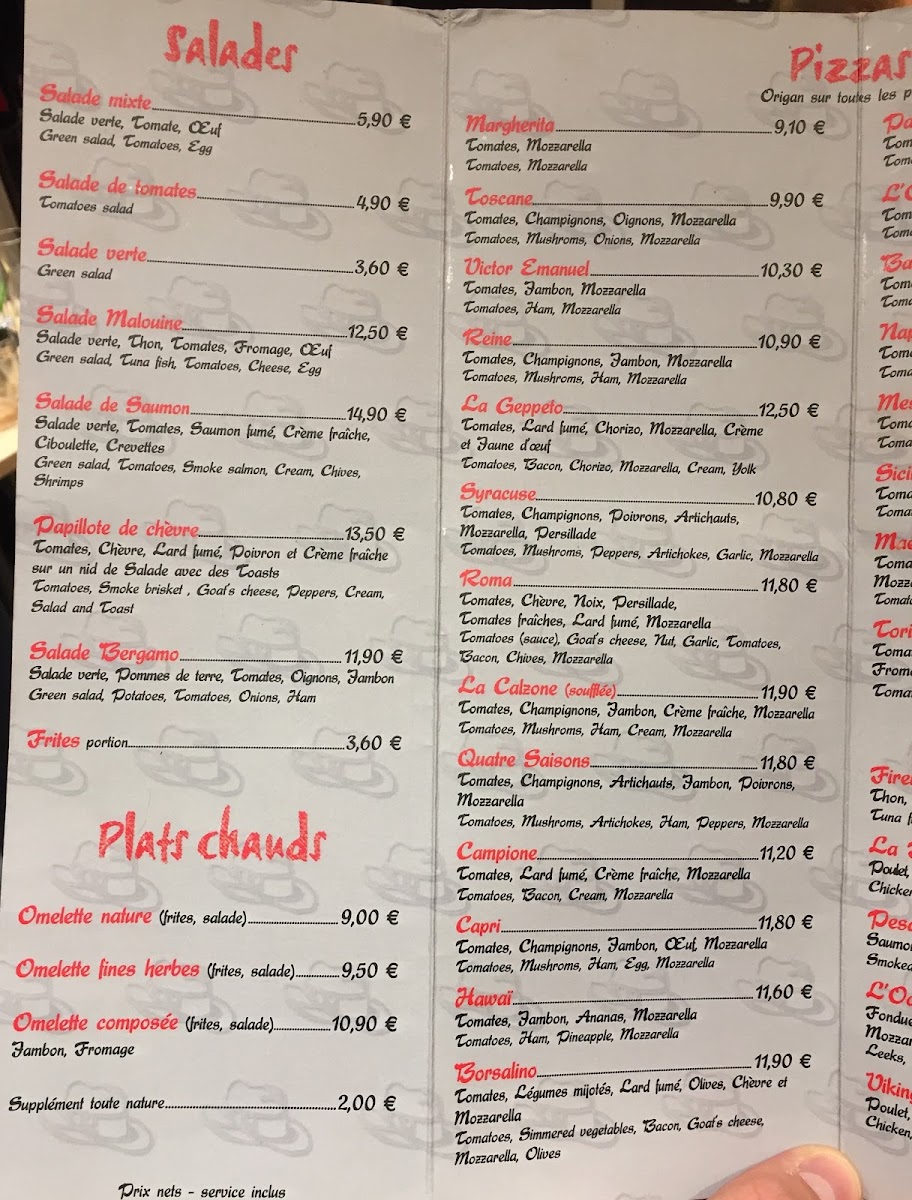 Salades
Salade mixte 5,90 €
Salade verte, Tomate, Œuf
Green salad, Tomatoes, Egg
Salade de tomates 4,90 €
Tomatoes salad
Salade verte 3,60 €
Green salad
Salade Malouine 12,50 €
Salade verte, Thon, Tomates, Fromage, Œuf
Green salad, Tuna fish, Tomatoes, Cheese, Egg
Salade de Saumon 14,90 €
Salade verte, Tomates, Saumon fumé, Crème fraîche,
Ciboulette, Crevettes
Green salad, Tomatoes, Smoke salmon, Cream, Chives,
Shrimps
Papillote de chèvre 13,50 €
Tomates, Chèvre, Lard fumé, Poivron et Crème fraîche
sur un nid de Salade avec des Toasts
Tomatoes, Smoke brisket , Goat's cheese, Peppers, Cream,
Salad and Toast
Salade Bergamo 11,90 €
Salade verte, Pommes de terre, Tomates, Oignons, Jambon
Green salad, Potatoes, Tomatoes, Onions, Ham
Frites portion 3,60 €
Plats chauds
Omelette nature (frites, salade) 9,00 €
Omelette fines herbes (frites, salade) 9,50 €
Omelette composée (frites, salade) 10,90 €
Jambon, Fromage
Supplément toute nature 2,00 €
Prix nets - service inclus
Pizzas
Origan sur toutes les p
Margherita 9,10 €
Tomates, Mozzarella
Tomatoes, Mozzarella
Toscane 9,90 €
Tomates, Champignons, Oignons, Mozzarella
Tomatoes, Mushroms, Onions, Mozzarella
Victor Emanuel 10,30 €
Tomates, Jambon, Mozzarella
Tomatoes, Ham, Mozzarella
Reine 10,90 €
Tomates, Champignons, Jambon, Mozzarella
Tomatoes, Mushroms, Ham, Mozzarella
La Geppeto 12,50 €
Tomates, Lard fumé, Chorizo, Mozzarella, Crème
et Jaune d'œuf
Tomatoes, Bacon, Chorizo, Mozzarella, Cream, Yolk
Syracuse 10,80 €
Tomates, Champignons, Poivrons, Artichauts,
Mozzarella, Persillade
Tomatoes, Mushroms, Peppers, Artichokes, Garlic, Mozzarella
Roma 11,80 €
Tomates, Chèvre, Noix, Persillade,
Tomates fraîches, Lard fumé, Mozzarella
Tomatoes (sauce), Goat's cheese, Nut, Garlic, Tomatoes,
Bacon, Chives, Mozzarella
La Calzone (soufflée) 11,90 €
Tomates, Champignons, Jambon, Crème fraîche, Mozzarella
Tomatoes, Mushroms, Ham, Cream, Mozzarella
Quatre Saisons 11,80 €
Tomates, Champignons, Artichauts, Jambon, Poivrons,
Mozzarella
Tomatoes, Mushroms, Artichokes, Ham, Peppers, Mozzarella
Campione 11,20 €
Tomates, Lard fumé, Crème fraîche, Mozzarella
Tomatoes, Bacon, Cream, Mozzarella
Capri 11,80 €
Tomates, Champignons, Jambon, Œuf, Mozzarella
Tomatoes, Mushroms, Ham, Egg, Mozzarella
Hawaï 11,60 €
Tomates, Jambon, Ananas, Mozzarella
Tomatoes, Ham, Pineapple, Mozzarella
Borsalino 11,90 €
Tomates, Légumes mijotés, Lard fumé, Olives, Chèvre et
Mozzarella
Tomatoes, Simmered vegetables, Bacon, Goat's cheese,
Mozzarella, Olives
La
Thon,
Tuna f
Poulet,
Chicken
Smoked
Leeks,
Viking
Poulet,
Chicken,